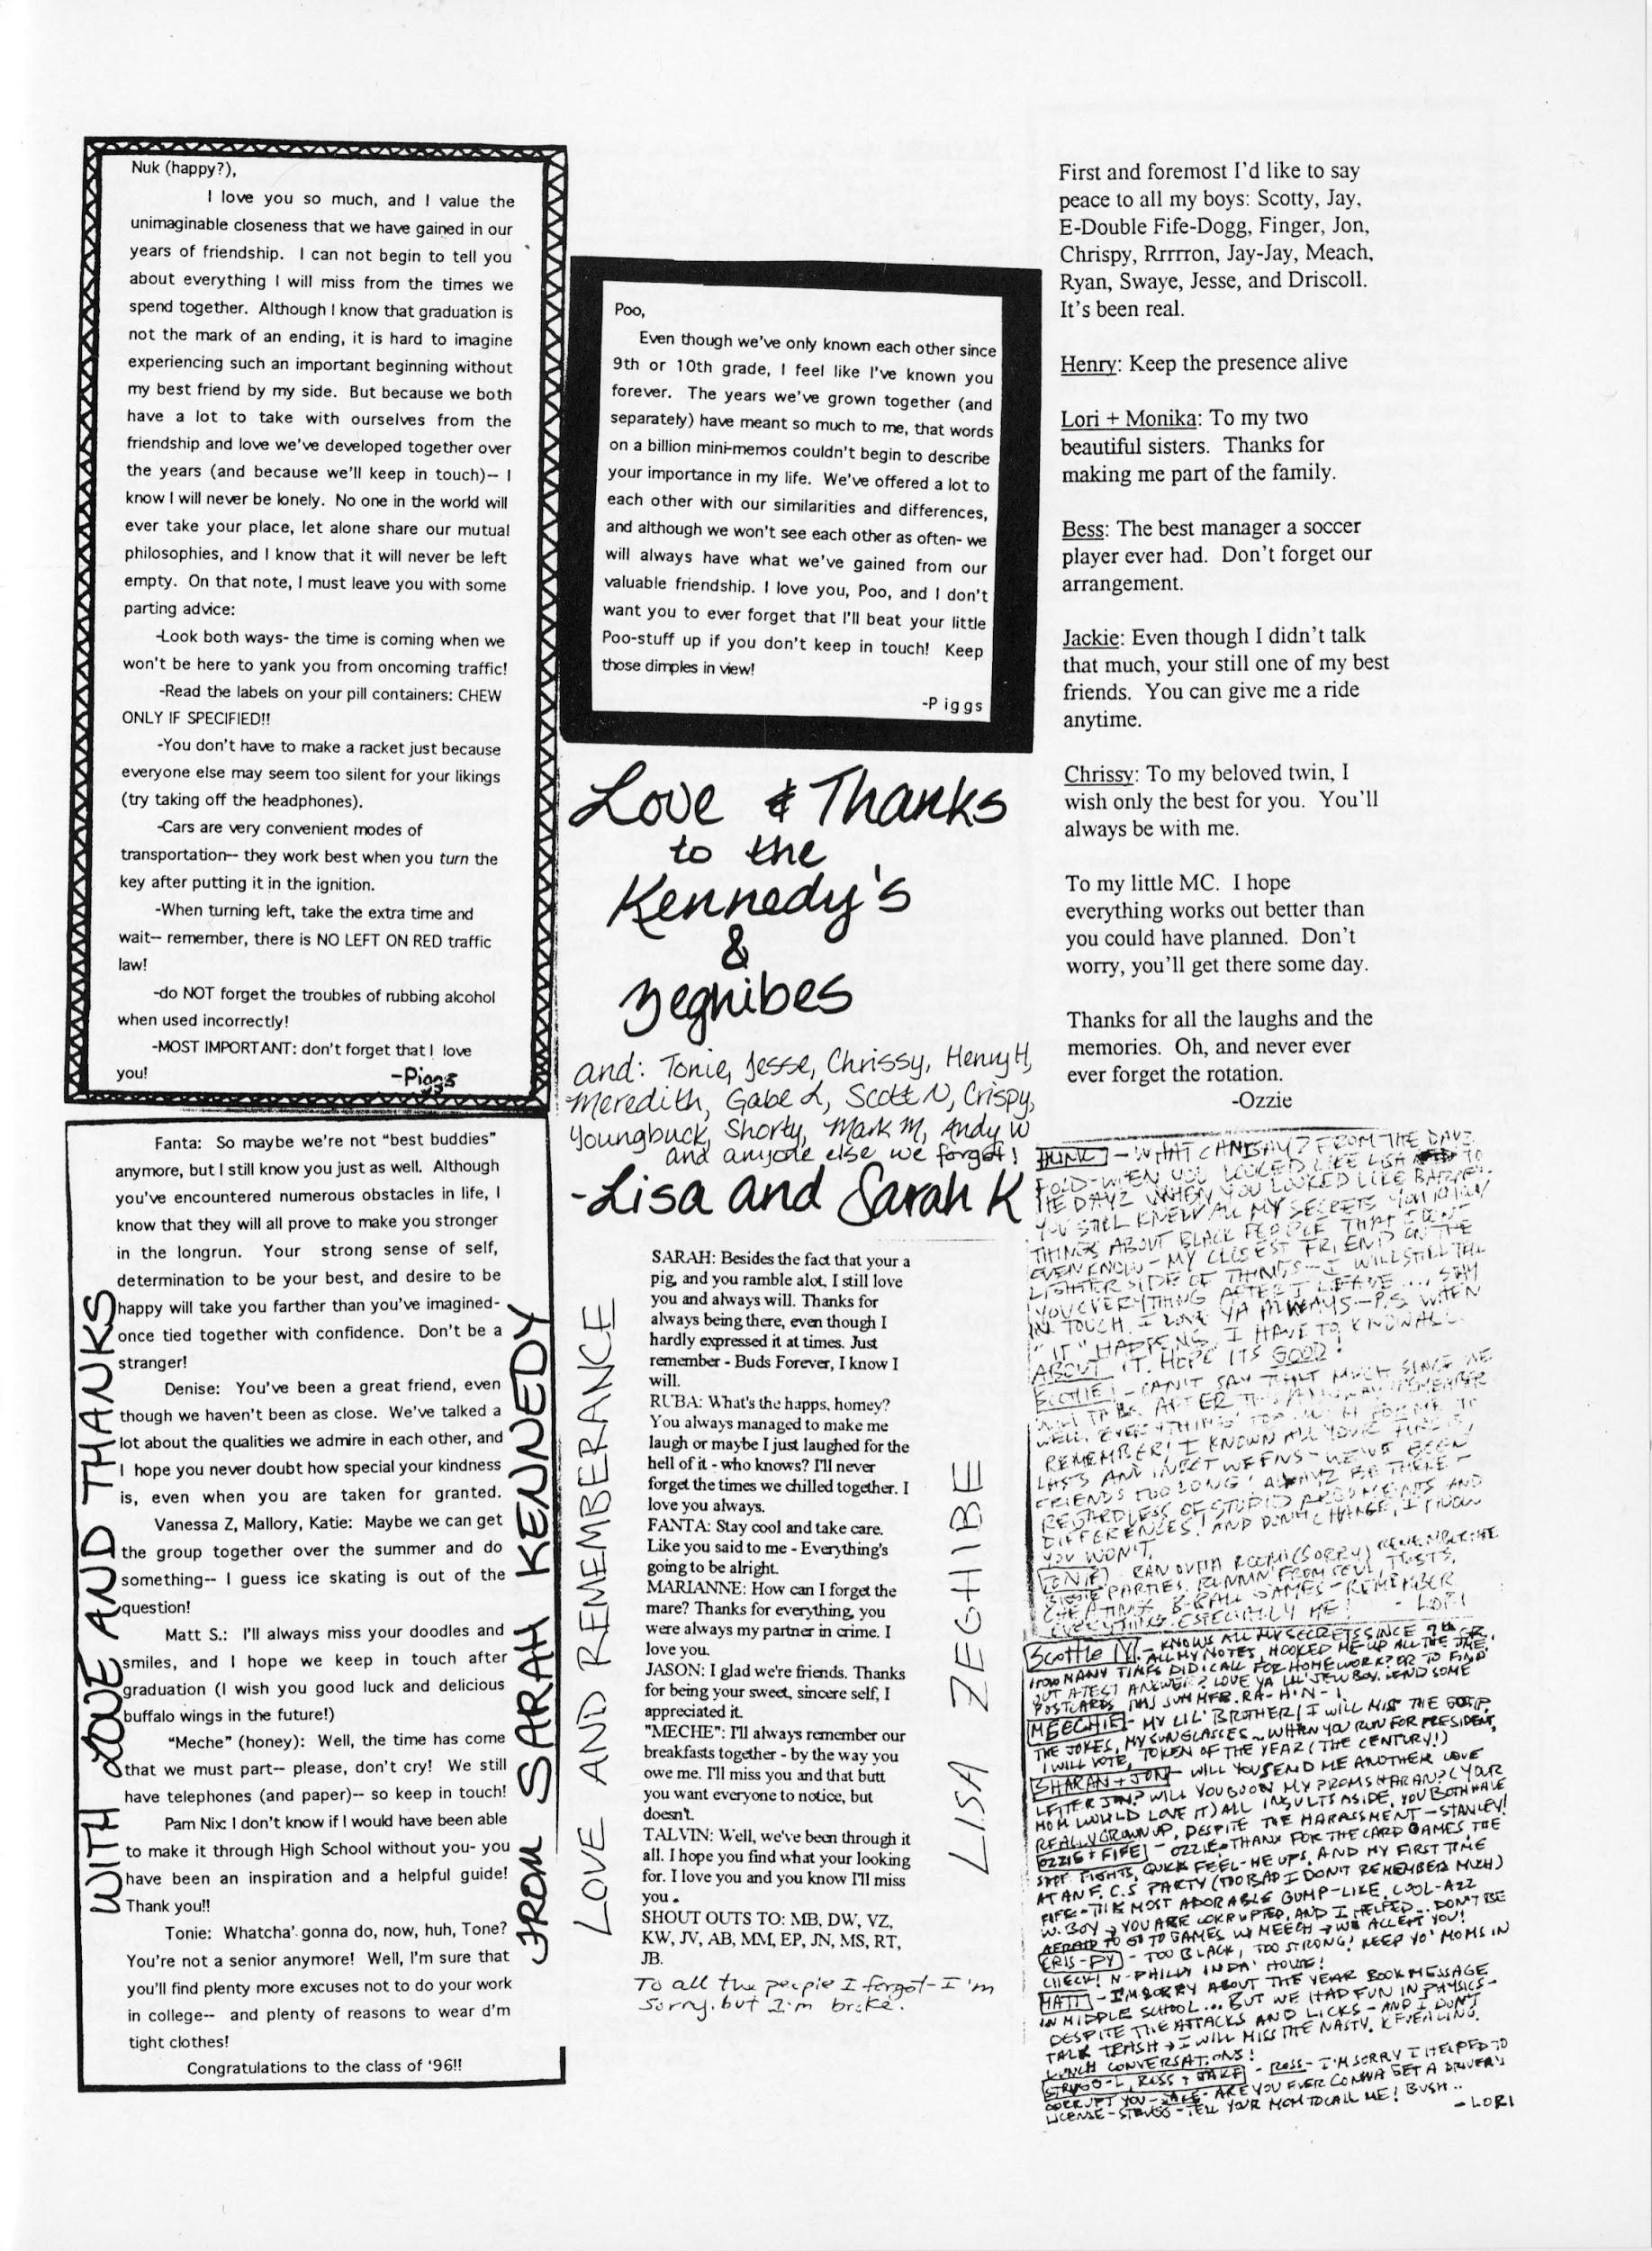 Nuk (happy?),
I love you so much, and I value the
unimaginable closeness that we have gained in our
years of friendship. I can not begin to tell you
about everything I will miss from the times we
spend together. Although I know that graduation is
not the mark of an ending, it is hard to imagine
experiencing such an important beginning without
my best friend by my side. But because we both
have a lot to take with ourselves from the
friendship and love we've developed together over
the years (and because we'll keep in touch)-- I
know I will never be lonely. No one in the world will
ever take your place, let alone share our mutual
philosophies, and I know that it will never be left
empty. On that note, I must leave you with some
parting advice:
-Look both ways- the time is coming when we
won't be here to yank you from oncoming traffic!
-Read the labels on your pill containers: CHEW
ONLY IF SPECIFIED!!
-You don't have to make a racket just because
everyone else may seem too silent for your likings
(try taking off the headphones).
-Cars are very convenient modes of
transportation-- they work best when you turn the
key after putting it in the ignition.
-When turning left, take the extra time and
wait-- remember, there is NO LEFT ON RED traffic
law!
-do NOT forget the troubles of rubbing alcohol
when used incorrectly!
-MOST IMPORTANT: don't forget that I love
you!
-Piggs
Fanta: So maybe we're not "best buddies"
anymore, but I still know you just as well. Although
you've encountered numerous obstacles in life, I
know that they will all prove to make you stronger
in the longrun. Your strong sense of self,
determination to be your best, and desire to be
happy will take you farther than you've imagined-
once tied together with confidence. Don't be a
stranger!
Denise: You've been a great friend, even
though we haven't been as close. We've talked a
lot about the qualities we admire in each other, and
I hope you never doubt how special your kindness
is, even when you are taken for granted.
Vanessa Z, Mallory, Katie: Maybe we can get
the group together over the summer and do
something-- I guess ice skating is out of the
question!
Matt S.: I'll always miss your doodles and
smiles, and I hope we keep in touch after
graduation (I wish you good luck and delicious
buffalo wings in the future!)
"Meche" (honey): Well, the time has come
that we must part-- please, don't cry! We still
have telephones (and paper)-- so keep in touch!
Pam Nix: I don't know if I would have been able
to make it through High School without you- you
have been an inspiration and a helpful guide!
Thank you!!
Tonie: Whatcha' gonna do, now, huh, Tone?
You're not a senior anymore! Well, I'm sure that
you'll find plenty more excuses not to do your work
in college-- and plenty of reasons to wear d'm
tight clothes!
Congratulations to the class of '96!!
WITH LOVE AND THANKS
FROM SARAH KENNEDY
Poo,
Even though we've only known each other since
9th or 10th grade, I feel like I've known you
forever. The years we've grown together (and
separately) have meant so much to me, that words
on a billion mini-memos couldn't begin to describe
your importance in my life. We've offered a lot to
each other with our similarities and differences,
and although we won't see each other as often- we
will always have what we've gained from our
valuable friendship. I love you, Poo, and I don't
want you to ever forget that I'll beat your little
Poo-stuff up if you don't keep in touch! Keep
those dimples in view!
-Piggs
Love & Thanks
to the
Kennedy's
&
Zeghibes
and: Tonie, Jesse, Chrissy, Henry H,
Meredith, Gabe L, Scott N, Crispy,
Youngbuck, Shorty, Mark M, Andy W
and anyone else we forgot!
-Lisa and Sarah K
SARAH: Besides the fact that your a
pig, and you ramble alot, I still love
you and always will. Thanks for
always being there, even though I
hardly expressed it at times. Just
remember - Buds Forever, I know I
will.
RUBA: What's the happs, homey?
You always managed to make me
laugh or maybe I just laughed for the
hell of it - who knows? I'll never
forget the times we chilled together. I
love you always.
FANTA: Stay cool and take care.
Like you said to me - Everything's
going to be alright.
MARIANNE: How can I forget the
mare? Thanks for everything, you
were always my partner in crime. I
love you.
JASON: I glad we're friends. Thanks
for being your sweet, sincere self, I
appreciated it.
"MECHE": I'll always remember our
breakfasts together - by the way you
owe me. I'll miss you and that butt
you want everyone to notice, but
doesn't.
TALVIN: Well, we've been through it
all. I hope you find what your looking
for. I love you and you know I'll miss
you.
SHOUT OUTS TO: MB, DW, VZ,
KW, JV, AB, MM, EP, JN, MS, RT,
JB.
To all the people I forgot - I'm
sorry, but I'm broke.
LOVE AND REMEMBERANCE
LISA ZEGHIBE
First and foremost I'd like to say
peace to all my boys: Scotty, Jay,
E-Double Fife-Dogg, Finger, Jon,
Chrispy, Rrrrron, Jay-Jay, Meach,
Ryan, Swaye, Jesse, and Driscoll.
It's been real.
Henry: Keep the presence alive
Lori + Monika: To my two
beautiful sisters. Thanks for
making me part of the family.
Bess: The best manager a soccer
player ever had. Don't forget our
arrangement.
Jackie: Even though I didn't talk
that much, your still one of my best
friends. You can give me a ride
anytime.
Chrissy: To my beloved twin, I
wish only the best for you. You'll
always be with me.
To my little MC. I hope
everything works out better than
you could have planned. Don't
worry, you'll get there some day.
Thanks for all the laughs and the
memories. Oh, and never ever
ever forget the rotation.
-Ozzie
- WHAT CAN I SAY? FROM THE DAYZ
WHEN YOU LOOKED LIKE LISA TO
THE DAYZ WHEN YOU LOOKED LIKE
YOU STILL KNEW ALL MY SECRETS YOU KNOW
THINGS ABOUT BLACK PEOPLE THAT I DON'T
EVEN KNOW - MY CLOSEST FRIEND ON THE
LIGHTER SIDE OF THINGS - I WILL STILL TELL
YOU EVERYTHING AFTER I LEAVE.... STAY
IN TOUCH. I LOVE YA ALWAYS - P.S. WHEN
"IT" HAPPENS, I HAVE TO KNOW ALL
ABOUT IT. HOPE ITS GOOD!
- CAN'T SAY THAT MUCH SINCE WE
REMEMBER
WELL, EVERYTHING TOO MUCH FOR ME TO
REMEMBER! I KNOW ALL YOUR FIRSTS,
LASTS AND INBETWEENS - WE'VE BEEN
FRIENDS TOO LONG! ALWAYZ BE THERE -
REGARDLESS OF STUPID ARGUMENTS AND
DIFFERENCES! AND DON'T CHANGE, I KNOW
YOU WON'T.
TONIE) RAN OUTTA ROOM (SORRY) REMEMBER THE
PARTIES, RUNNIN' FROM TESTS,
CHEATIN, B-BALL GAMES - REMEMBER
EVERYTHING. ESPECIALLY ME! - LORI
Scottie N - KNOWS ALL MY SECRETS SINCE 7th GR.
ALL MY NOTES, HOOKED ME UP ALL THE TIME.
HOW MANY TIMES DID I CALL FOR HOMEWORK? OR TO FIND
OUT A TEST ANSWER? LOVE YA LIL' JEW BOY. SEND SOME
POSTCARDS THIS SUMMER. RA-H-N-I.
MEECHIE - MY LIL' BROTHER! I WILL MISS THE GOSSIP,
THE JOKES, MY SUNGLASSES ~ WHEN YOU RUN FOR PRESIDENT,
I WILL VOTE, TOKEN OF THE YEAR (THE CENTURY!)
SHARAN + JON - WILL YOU SEND ME ANOTHER LOVE
LETTER JON? WILL YOU GO ON MY PROM SHARAN? (YOUR
MOM WOULD LOVE IT) ALL INSULTS ASIDE, YOU BOTH HAVE
REALLY GROWN UP, DESPITE THE HARASSMENT - STANLEY!
OZZIE + FIFE - OZZIE - THANX FOR THE CARD GAMES, THE
SPIT FIGHTS, QUICK FEEL-ME UPS, AND MY FIRST TIME
AT AN F.C.S PARTY (TOO BAD I DON'T REMEMBER MUCH)
FIFE - THE MOST ADORABLE GUMP-LIKE, COOL-AZZ
W. BOY → YOU ARE CORRUPTED, AND I HELPED... DON'T BE
AFRAID TO GO TO GAMES W/ MEECH → WE ACCEPT YOU!
CRIS-PY - TOO BLACK, TOO STRONG! KEEP YO' MOMS IN
CHECK! N-PHILLY IN DA' HOUSE!
MATT - I'M SORRY ABOUT THE YEAR BOOK MESSAGE
IN MIDDLE SCHOOL... BUT WE HAD FUN IN PHYSICS -
DESPITE THE ATTACKS AND LICKS - AND I DON'T
TALK TRASH → I WILL MISS THE NASTY, REVEALING
LUNCH CONVERSATIONS!
STRUGG-L, ROSS + JAKE - ROSS - I'M SORRY I HELPED TO
CORRUPT YOU - JAKE - ARE YOU EVER GONNA GET A DRIVER'S
LICENSE - STRUGG - TELL YOUR MOM TO CALL ME! BUSH..
- LORI